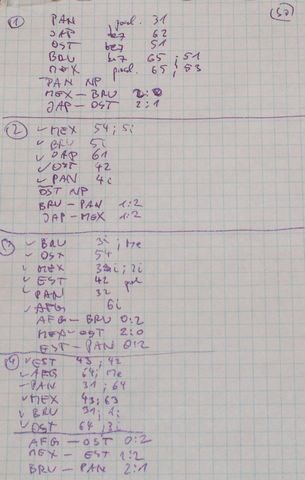 (52)
① PAN pool. 31
JAP b27 62
OST b27 51
BRU b27 65 ; 51
MEX pool. 65 ; 53
PAN NP
MEX - BRU 2:0
JAP - OST 2:1
② ✓ MEX 54 ; 5i
✓ BRU 5i
✓ JAP 61
✓ OST 42
✓ PAN 4i
OST NP
BRU - PAN 1:2
JAP - MEX 1:2
③ ✓ BRU 3i ; Me
✓ OST 54
✓ MEX 3i ; 2i
✓ EST 42
✓ PAN 32
✓ AFG 6i
AFG - BRU 0:2
MEX - OST 2:0
EST - PAN 0:2
④ ✓ EST 43 ; 42
✓ AFG 64 ; Me
✓ PAN 31 ; 64
✓ MEX 43 ; 63
✓ BRU 31 ; 1i
✓ OST 64 ; 3i
AFG - OST 0:2
MEX - EST 1:2
BRU - PAN 2:1